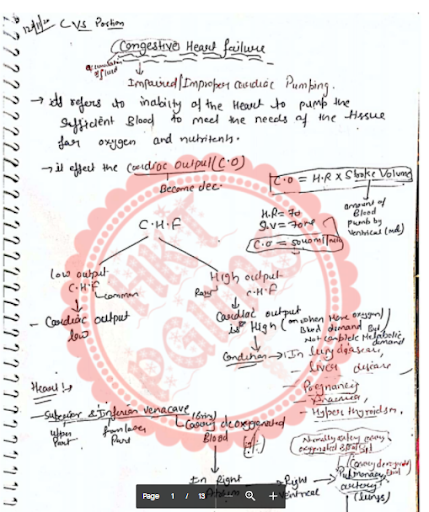 12/11/20 CVS Portion
Congestive Heart failure
accumulation of fluid
Impaired/Improper cardiac Pumping.
→ it refers to inability of the Heart to pump the
sufficient Blood to meet the needs of the tissue
for oxygen and nutrients.
→ it effect the Cardiac output (C.O)
Become dec.
C.O = H.R x Stroke Volume
amount of
Blood
Pump by
Ventricles (ml)
H.R = 70
S.V = 70ml
C.O = 5040ml/min
C.H.F
low output
C.H.F
common
- Cardiac output
low
High output
Rare C.H.F
Cardiac output
is High (on when More oxygen/
Blood demand But
Not complete Metabolic
demand
Condition → In lung disease,
- Liver disease
- Pregnancy
- Hyper thyroidism.
Heart :-
- Superior & Inferior venacava (bring)
upper
Part
from lower
Part
(carry deoxygenated
Blood
Normally artery carry
oxygenated Blood
In Right
→ Right
Ventricle
→ Pulmonary
artery
(lungs)
HKT
PGIMS
Page 1 / 13